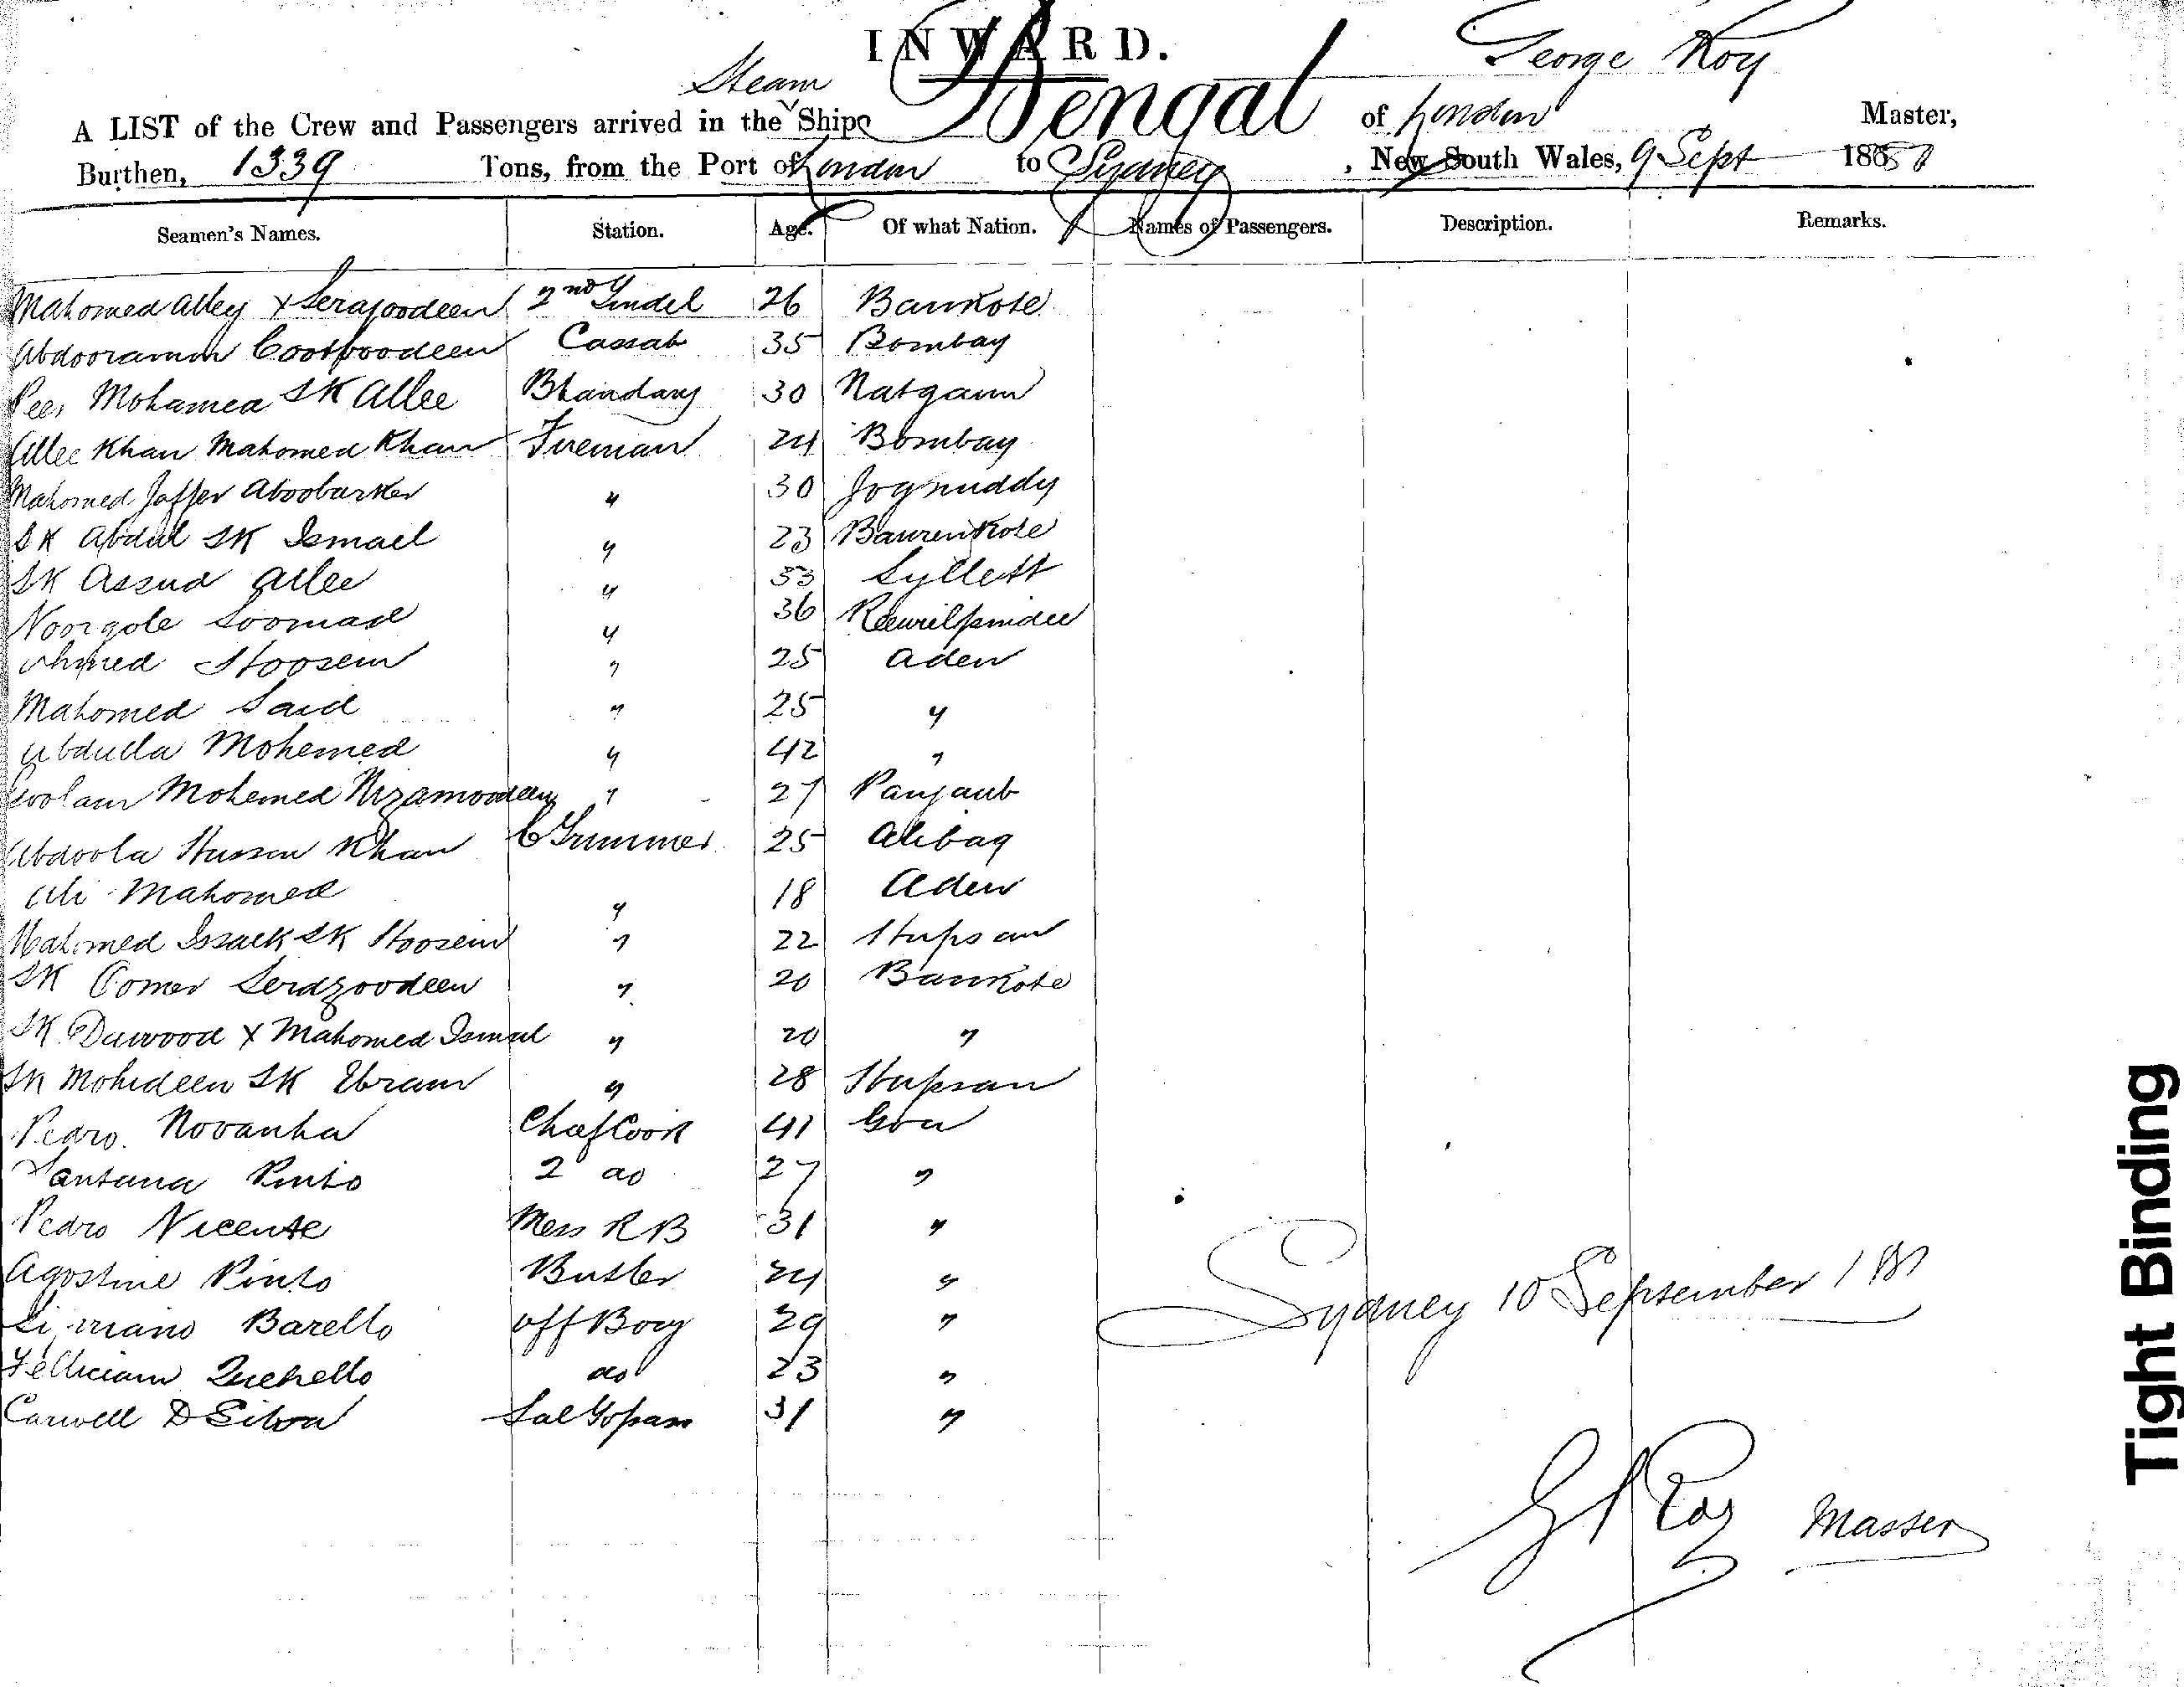 INWARD.
George Roy
A LIST of the Crew and Passengers arrived in the Steam Ship Bengal of London Master,
Burthen, 1339 Tons, from the Port of London to Sydney, New South Wales, 9 Sept 188
Seamen's Names. Station. Age. Of what Nation. Names of Passengers. Description. Remarks.
Mahomed Alley x Serajoodeen 2nd Tindel 26 Bankote
Abdooramin Cootboodeen Cassab 35 Bombay
Peer Mohamed SK Allee Bhandary 30 Natgaum
Allee Khan Mahomed Khan Fireman 24 Bombay
Mahomed Jaffer Aboobarker " 30 Jognuddy
SK Abdul SK Ismael " 23
SK Assud Allee " 33 Syllett
Noorgole " 36 Rewilpindee
Ahmed Hoosein " 25 Aden
Mahomed Said " 25 "
Abdulla Mohemed " 42 "
Goolam Mohemed Nizamoodeen " 27 Panjaub
Abdoola Hussen Khan C Trimmer 25 Alibag
Ali Mahomed " 18 Aden
Mahomed Issack SK Hoosein " 22 Hupsan
SK Oomer Serazoodeen " 20 Bankote
SK Dawood x Mahomed Ismael " 20 "
SK Mohideen SK Ebram " 28 Hupsan
Pedro Novanha Chef Cook 41 Goa
Santana Pinto 2 do 27 "
Pedro Vicente Mess R B 31 "
Agostine Pinto Butler 24 "
Barello off Boy 29 "
Felliciam do 23 "
Carwell D Silva Sal Topass 31 "
Sydney 10 September 188
G Roy Master
Tight Binding